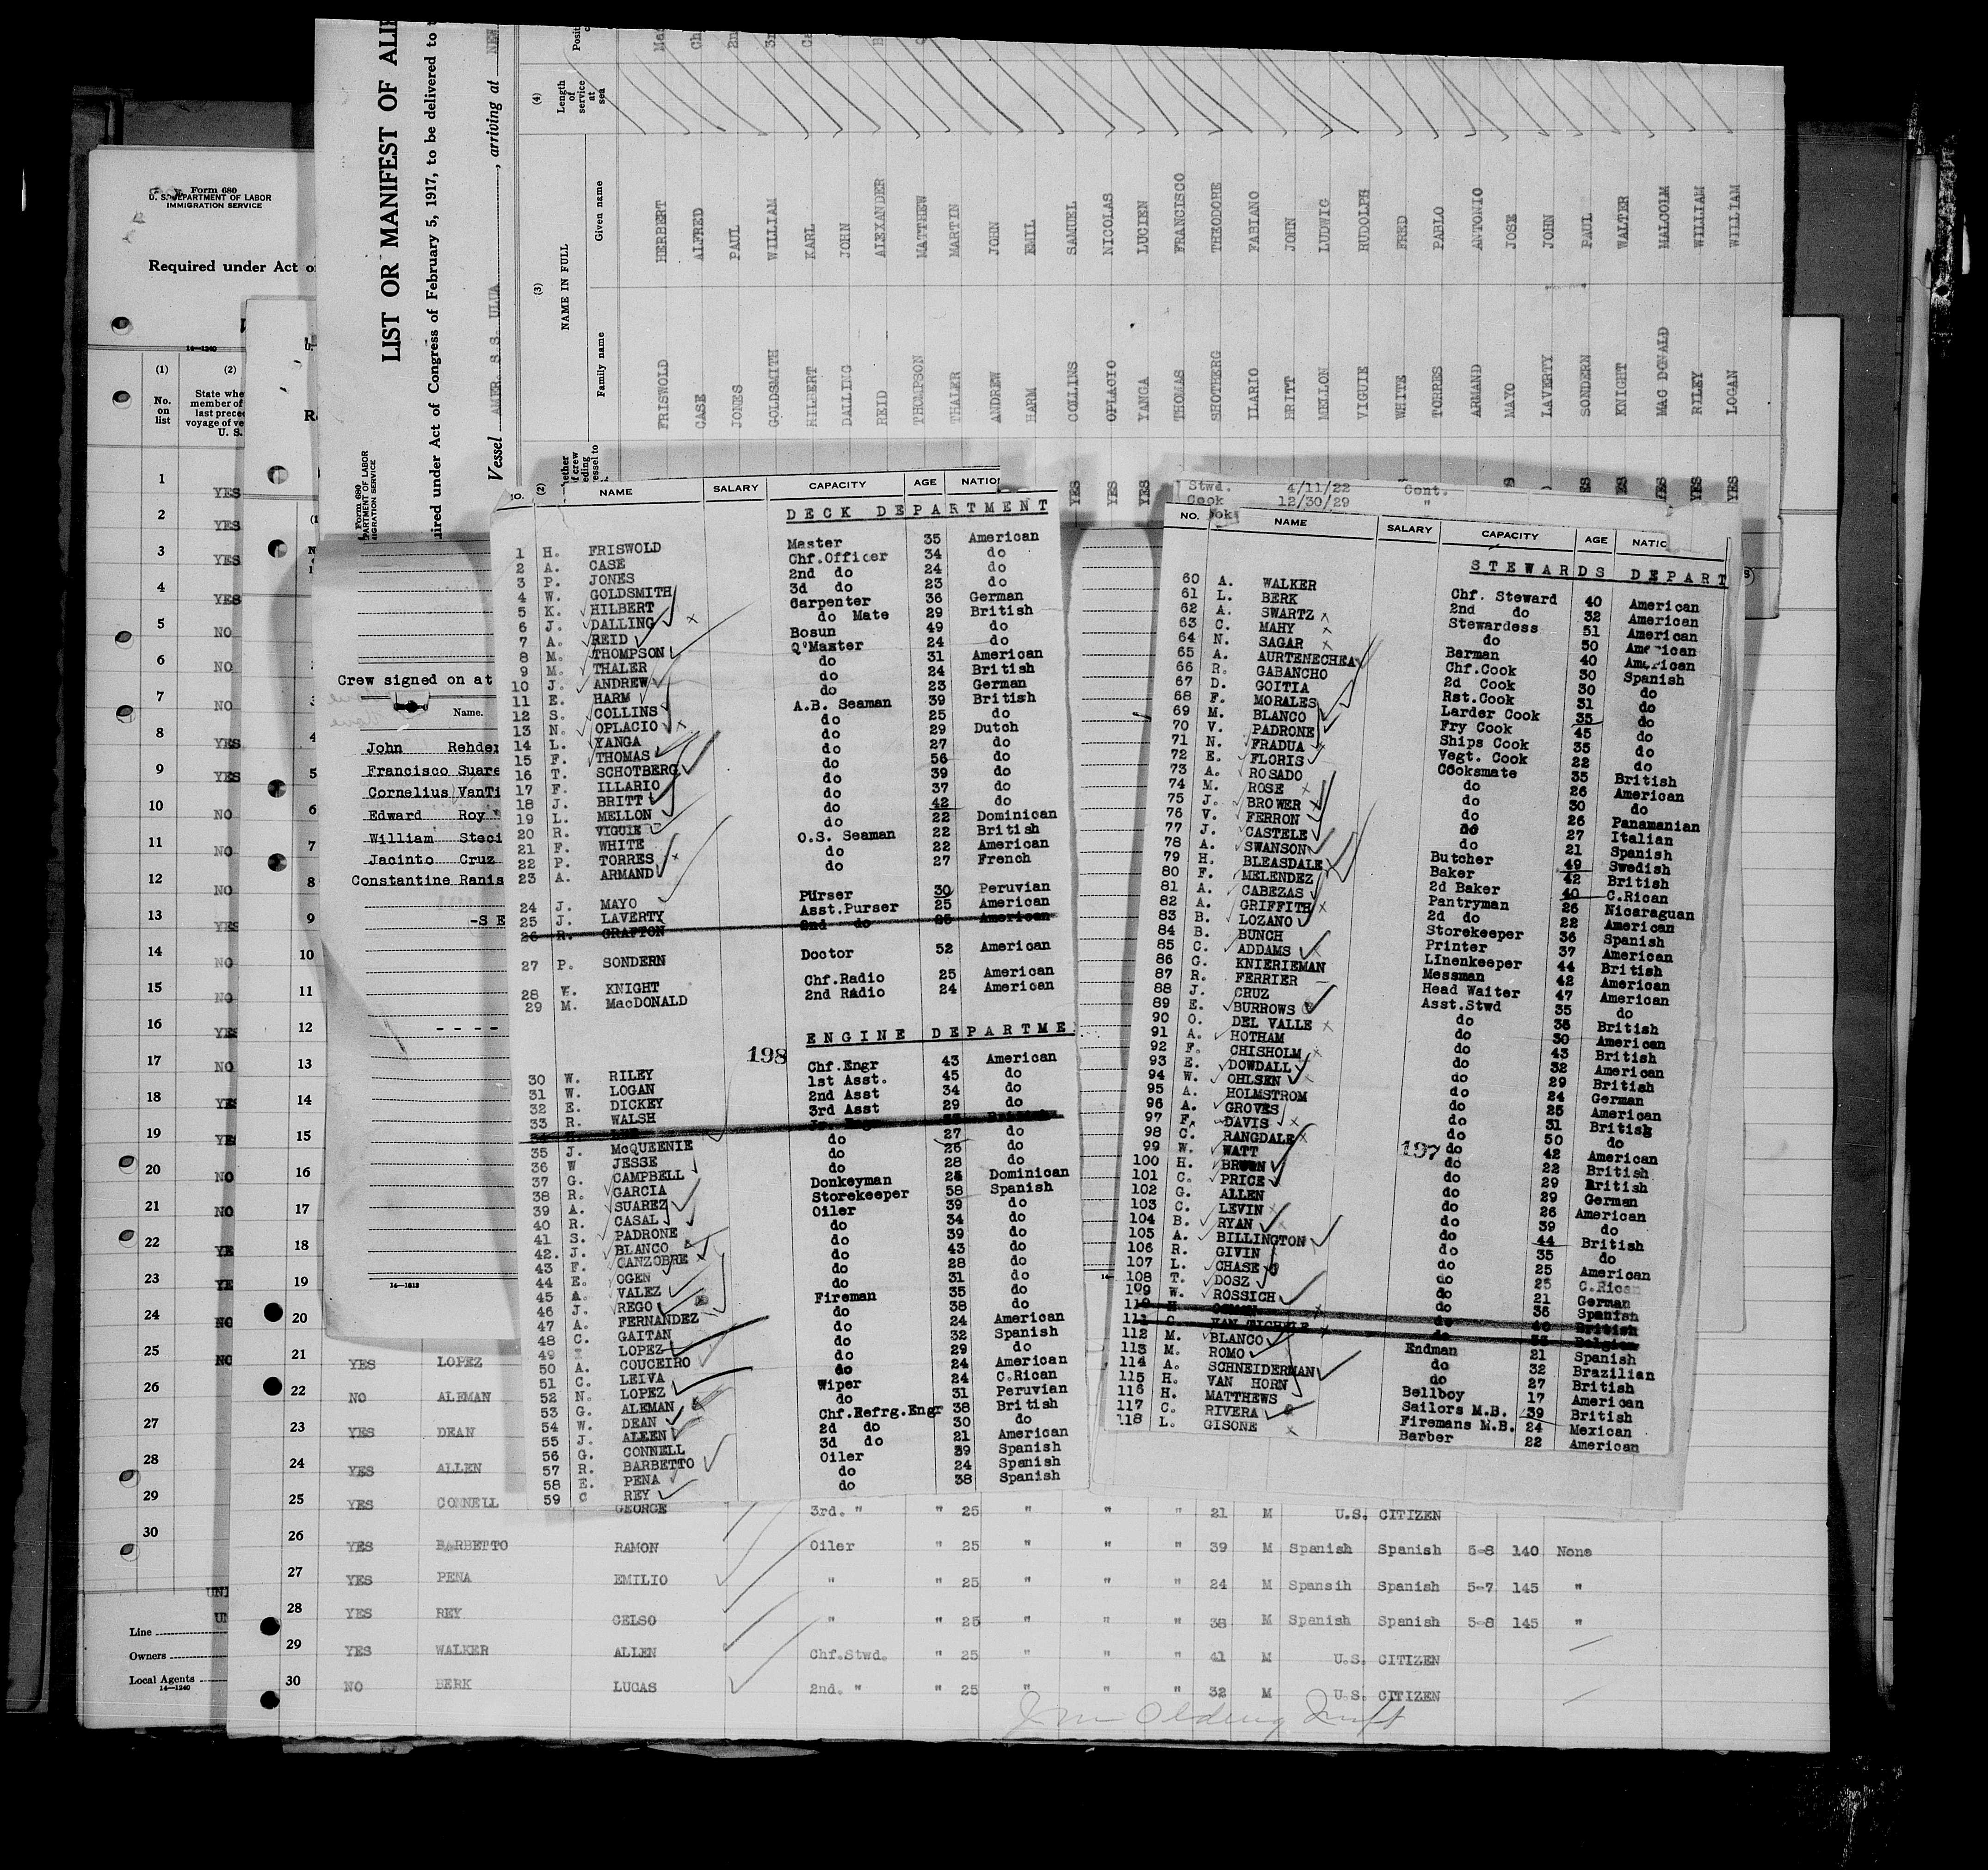 Form 680
U. S. DEPARTMENT OF LABOR
IMMIGRATION SERVICE
Required under Act o
14—1240
(1) (2)
No. on list
State whe
member of
last prece
voyage of ve
U. S.
1 YES
2 YES
3 YES
4 YES
5 NO
6 NO
7 NO
8 YES
9 YES
10 NO
11 NO
12 NO
13 YES
14 NO
15 NO
16 YES
17 NO
18 YES
19 YES
20 NO
21 NO
22 YE
23 YE
24 NO
25 NO
26
27
28
29
30
Line
Owners
Local Agents
14—1240
LIST OR MANIFEST OF ALIE
uired under Act of Congress of February 5, 1917, to be delivered to t
Vessel AMER. S. S. ULUA, arriving at NEW
(4)
Length of service at sea
(3)
NAME IN FULL
Family name Given name
FRISWOLD HERBERT
CASE ALFRED
JONES PAUL
GOLDSMITH WILLIAM
HILBERT KARL
DALLING JOHN
REID ALEXANDER
THOMPSON MATTHEW
THALER MARTIN
ANDREW JOHN
HARM EMIL
COLLINS SAMUEL
OPLACIO NICOLAS
YANGA LUCIEN
THOMAS FRANCISCO
SHOTBERG THEODORE
ILARIO FABIANO
BRITT JOHN
MELLON LUDWIG
VIGUIE RUDOLPH
WHITE FRED
TORRES PABLO
ARMAND ANTONIO
MAYO JOSE
LAVERTY JOHN
SONDERN PAUL
KNIGHT WALTER
MAC DONALD MALCOLM
RILEY WILLIAM
LOGAN WILLIAM
Crew signed on at
Name.
John Rehder
Francisco Suare
Cornelius VanTi
Edward Roy
William Steci
Jacinto Cruz
Constantine Ranis
-S E
14—1813
Stwd. 4/11/22 Cont.
Cook 12/30/29 "
NO. NAME SALARY CAPACITY AGE NATIO
DECK DEPARTMENT
1 H. FRISWOLD Master 35 American
2 A. CASE Chf.Officer 34 do
3 P. JONES 2nd do 24 do
4 W. GOLDSMITH 3d do 23 do
5 K. HILBERT Carpenter 36 German
6 J. DALLING do Mate 29 British
7 A. REID Bosun 49 do
8 M. THOMPSON Q'Master 24 do
9 M. THALER do 31 American
10 J. ANDREW do 24 British
11 E. HARM do 23 German
12 S. COLLINS A.B. Seaman 39 British
13 N. OPLACIO do 25 do
14 L. YANGA do 29 Dutch
15 F. THOMAS do 27 do
16 T. SCHOTBERG do 56 do
17 F. ILLARIO do 39 do
18 J. BRITT do 37 do
19 L. MELLON do 42 do
20 R. VIGUIE do 22 Dominican
21 F. WHITE O.S. Seaman 22 British
22 P. TORRES do 22 American
23 A. ARMAND do 27 French
24 J. MAYO Purser 30 Peruvian
25 J. LAVERTY Asst.Purser 25 American
26 R. GRAFTON 2nd do American
27 P. SONDERN Doctor 52 American
28 W. KNIGHT Chf.Radio 25 American
29 M. MacDONALD 2nd Radio 24 American
198
ENGINE DEPARTME
30 W. RILEY Chf.Engr 43 American
31 W. LOGAN 1st Asst. 45 do
32 E. DICKEY 2nd Asst 34 do
33 R. WALSH 3rd Asst 29 do
35 J. McQUEENIE do 27 do
36 W JESSE do 26 do
37 G. CAMPBELL do 28 do
38 R. GARCIA Donkeyman 26 Dominican
39 A. SUAREZ Storekeeper 58 Spanish
40 R. CASAL Oiler 39 do
41 S. PADRONE do 34 do
42. J. BLANCO do 39 do
43 F. CANZOBRE do 43 do
44 E. OGEN do 28 do
45 A. VALEZ do 31 do
46 J. REGO Fireman 35 do
47 A. FERNANDEZ do 38 do
48 C. GAITAN do 24 American
49 LOPEZ do 32 Spanish
50 A. COUCEIRO do 29 do
51 C. LEIVA do 24 American
52 N. LOPEZ Wiper 24 C.Rican
53 G. ALEMAN do 31 Peruvian
54 W. DEAN Chf.Refrg.Engr 38 British
55 J. ALLEN 2d do 30 do
56 G. CONNELL 3d do 21 American
57 R. BARBETTO Oiler 39 Spanish
58 E. PENA do 24 Spanish
59 C REY do 38 Spanish
NO. NAME SALARY CAPACITY AGE NATIO
STEWARDS DEPART
60 A. WALKER Chf. Steward 40 American
61 L. BERK 2nd do 32 American
62 A. SWARTZ Stewardess 51 American
63 C. MAHY do 50 American
64 N. SAGAR Barman 40 American
65 A. AURTENECHEA Chf.Cook 30 Spanish
66 R. GABANCHO 2d Cook 30 do
67 D. GOITIA Rst.Cook 31 do
68 F. MORALES Larder Cook 35 do
69 M. BLANCO Fry Cook 45 do
70 V. PADRONE Ships Cook 35 do
71 N. FRADUA Vegt. Cook 22 do
72 E. FLORIS Cooksmate 35 British
73 A. ROSADO do 26 American
74 M. ROSE do 30 do
75 J. BROWER do 26 Panamanian
76 V. FERRON do 27 Italian
77 J. CASTELE do 21 Spanish
78 A. SWANSON Butcher 49 Swedish
79 H. BLEASDALE Baker 42 British
80 F. MELENDEZ 2d Baker 40 C.Rican
81 A. CABEZAS Pantryman 26 Nicaraguan
82 A. GRIFFITH 2d do 22 American
83 B. LOZANO Storekeeper 36 Spanish
84 B. BUNCH Printer 37 American
85 C. ADDAMS Linenkeeper 44 British
86 G. KNIERIEMAN Messman 42 American
87 R. FERRIER Head Waiter 47 American
88 J. CRUZ Asst.Stwd 35 do
89 E. BURROWS do 38 British
90 O. DEL VALLE do 30 American
91 A. HOTHAM do 43 British
92 F. CHISHOLM do 32 American
93 E. DOWDALL do 29 British
94 W. OHLSEN do 24 German
95 A. HOLMSTROM do 25 American
96 A. GROVES do 31 British
97 F. DAVIS do 50 do
98 C. RANGDALE do 42 American
99 W. WATT do 22 British
197
100 H. BRUUN do 29 British
101 C. PRICE do 29 German
102 G. ALLEN do 26 American
103 C. LEVIN do 39 do
104 B. RYAN do 44 British
105 A. BILLINGTON do 35 do
106 R. GIVIN do 25 American
107 L. CHASE do 25 C.Rican
108 T. DOSZ do 21 German
109 W. ROSSICH do 36 Spanish
110 H do 40 British
111 C. VAN TICHELE do Belgian
112 M. BLANCO Endman 21 Spanish
113 M. ROMO do 32 Brazilian
114 A. SCHNEIDERMAN do 27 British
115 H. VAN HORN Bellboy 17 American
116 H. MATTHEWS Sailors M.B. 39 British
117 C. RIVERA Firemans M.B. 24 Mexican
118 L. GISONE Barber 22 American
21 YES LOPEZ
22 NO ALEMAN
23 YES DEAN
24 YES ALLEN
25 YES CONNELL GEORGE 3rd. " " 25 " " " 21 M U.S. CITIZEN
26 YES BARBETTO RAMON Oiler " 25 " " " 39 M Spanish Spanish 5-8 140 None
27 YES PENA EMILIO " " 25 " " " 24 M Spansih Spanish 5-7 145 "
28 YES REY CELSO " " 25 " " " 38 M Spanish Spanish 5-8 145 "
29 YES WALKER ALLEN Chf.Stwd. " 25 " " " 41 M U.S. CITIZEN
30 NO BERK LUCAS 2nd. " " 25 " " " 32 M U.S. CITIZEN